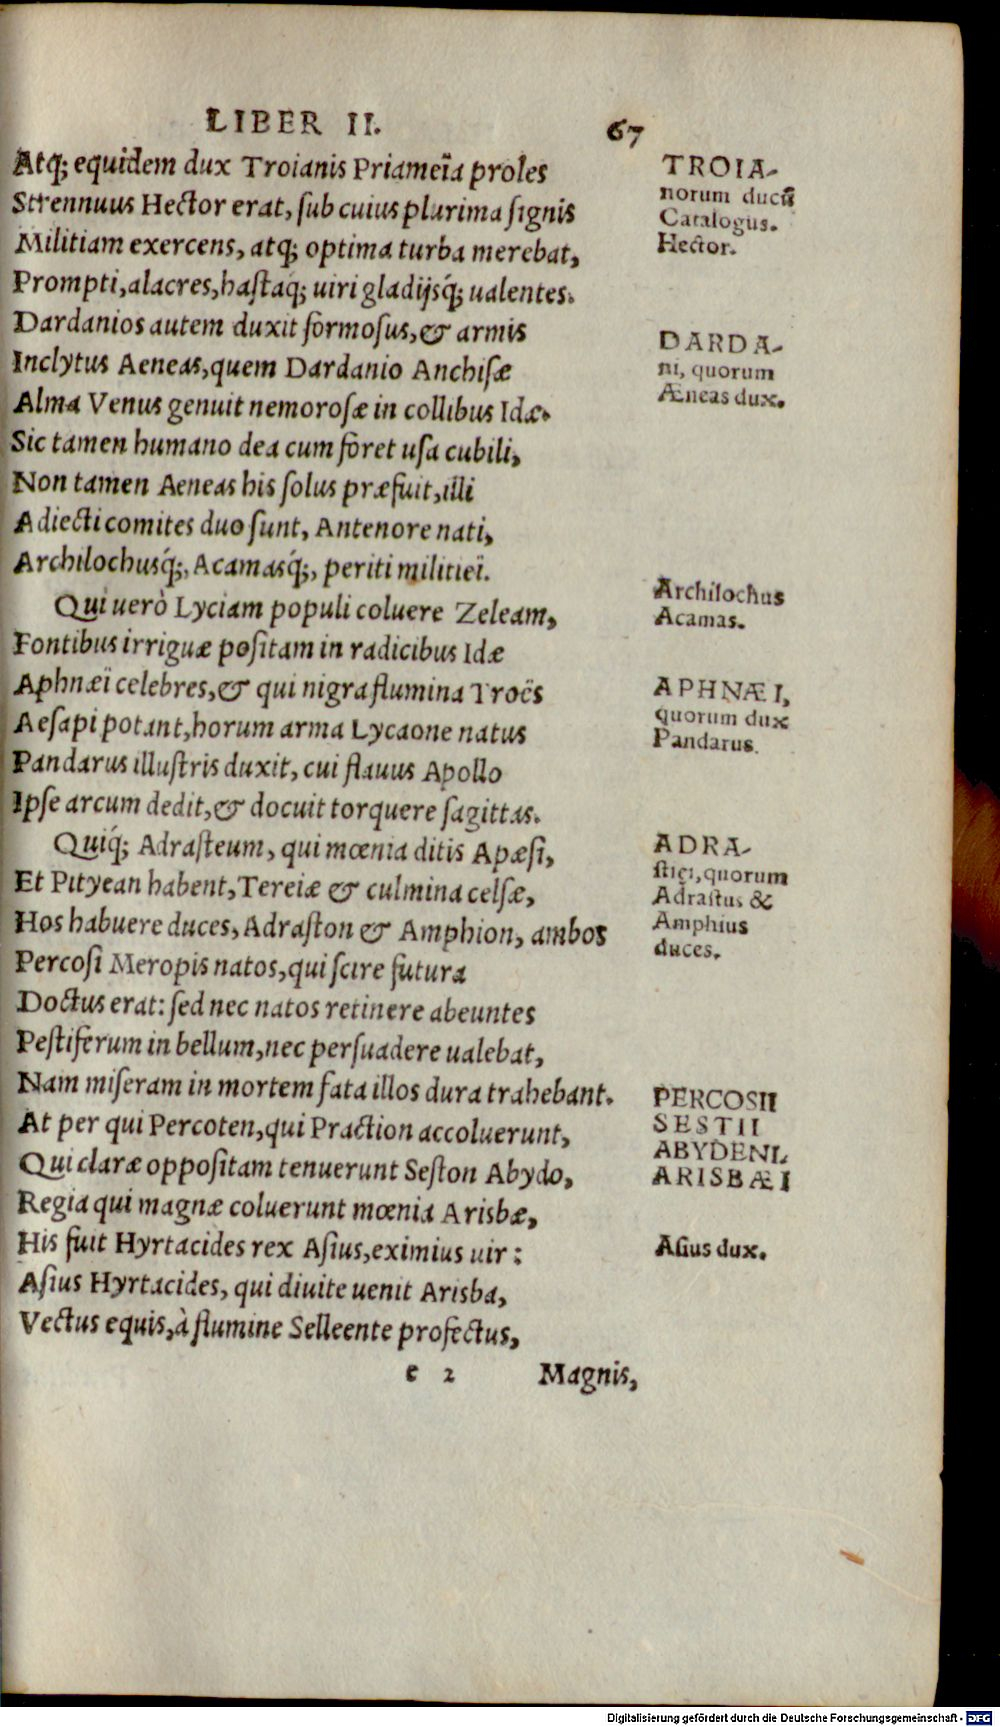 LIBER II. 67
Atq; equidem dux Troianis Priameïa proles
Strennuus Hector erat, ſub cuius plurima ſignis
Militiam exercens, atq; optima turba merebat,
Prompti, alacres, haſtaq́; uiri gladijsq́; ualentes.
Dardanios autem duxit formoſus, & armis
Inclytus Aeneas, quem Dardanio Anchiſæ
Alma Venus genuit nemoroſæ in collibus Idæ.
Sic tamen humano dea cum foret uſa cubili,
Non tamen Aeneas his ſolus præfuit, illi
Adiecti comites duo ſunt, Antenore nati,
Archilochusq́;, Acamasq́;, periti militieï.
Qui uerò Lyciam populi coluere Zeleam,
Fontibus irriguæ poſitam in radicibus Idæ
Aphnæï celebres, & qui nigra flumina Troës
Aeſapi potant, horum arma Lycaone natus
Pandarus illuſtris duxit, cui flauus Apollo
Ipſe arcum dedit, & docuit torquere ſagittas.
Quiq́; Adraſteum, qui mœnia ditis Apæſi,
Et Pityean habent, Tereiæ & culmina celſæ,
Hos habuere duces, Adraſton & Amphion, ambos
Percoſi Meropis natos, qui ſcire futura
Doctus erat: ſed nec natos retinere abeuntes
Peſtiferum in bellum, nec perſuadere ualebat,
Nam miſeram in mortem fata illos dura trahebant.
At per qui Percoten, qui Praction accoluerunt,
Qui claræ oppoſitam tenuerunt Seſton Abydo,
Regia qui magnæ coluerunt mœnia Arisbæ,
His fuit Hyrtacides rex Aſius, eximius uir:
Aſius Hyrtacides, qui diuite uenit Arisba,
Vectus equis, à flumine Selleente profectus,
e 2 Magnis,
TROIA-
norum ducũ
Catalogus.
Hector.
DARDA-
ni, quorum
Æneas dux.
Archilochus
Acamas.
APHNÆI,
quorum dux
Pandarus.
ADRA-
ſtiei, quorum
Adraſtus &
Amphius
duces.
PERCOSII
SESTII
ABYDENI.
ARISBÆI
Aſius dux.
Digitalisierung gefördert durch die Deutsche Forschungsgemeinschaft - DFG